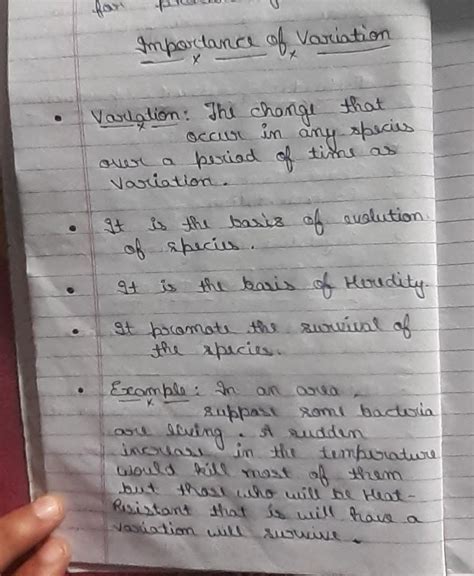 for
Importance of Variation
• Variation: The change that
occur in any species
over a period of time as
variation.
• It is the basis of evolution
of species.
• It is the basis of Heredity.
• It promote the survival of
the species.
• Example: In an area,
suppose some bacteria
are living. A sudden
increase in the temperature
would kill most of them
but those who will be Heat-
Resistant that is will have a
variation will survive.